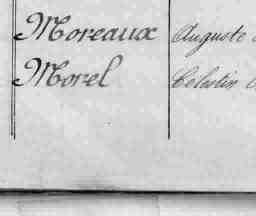 Moreaux Auguste
Morel Celestin